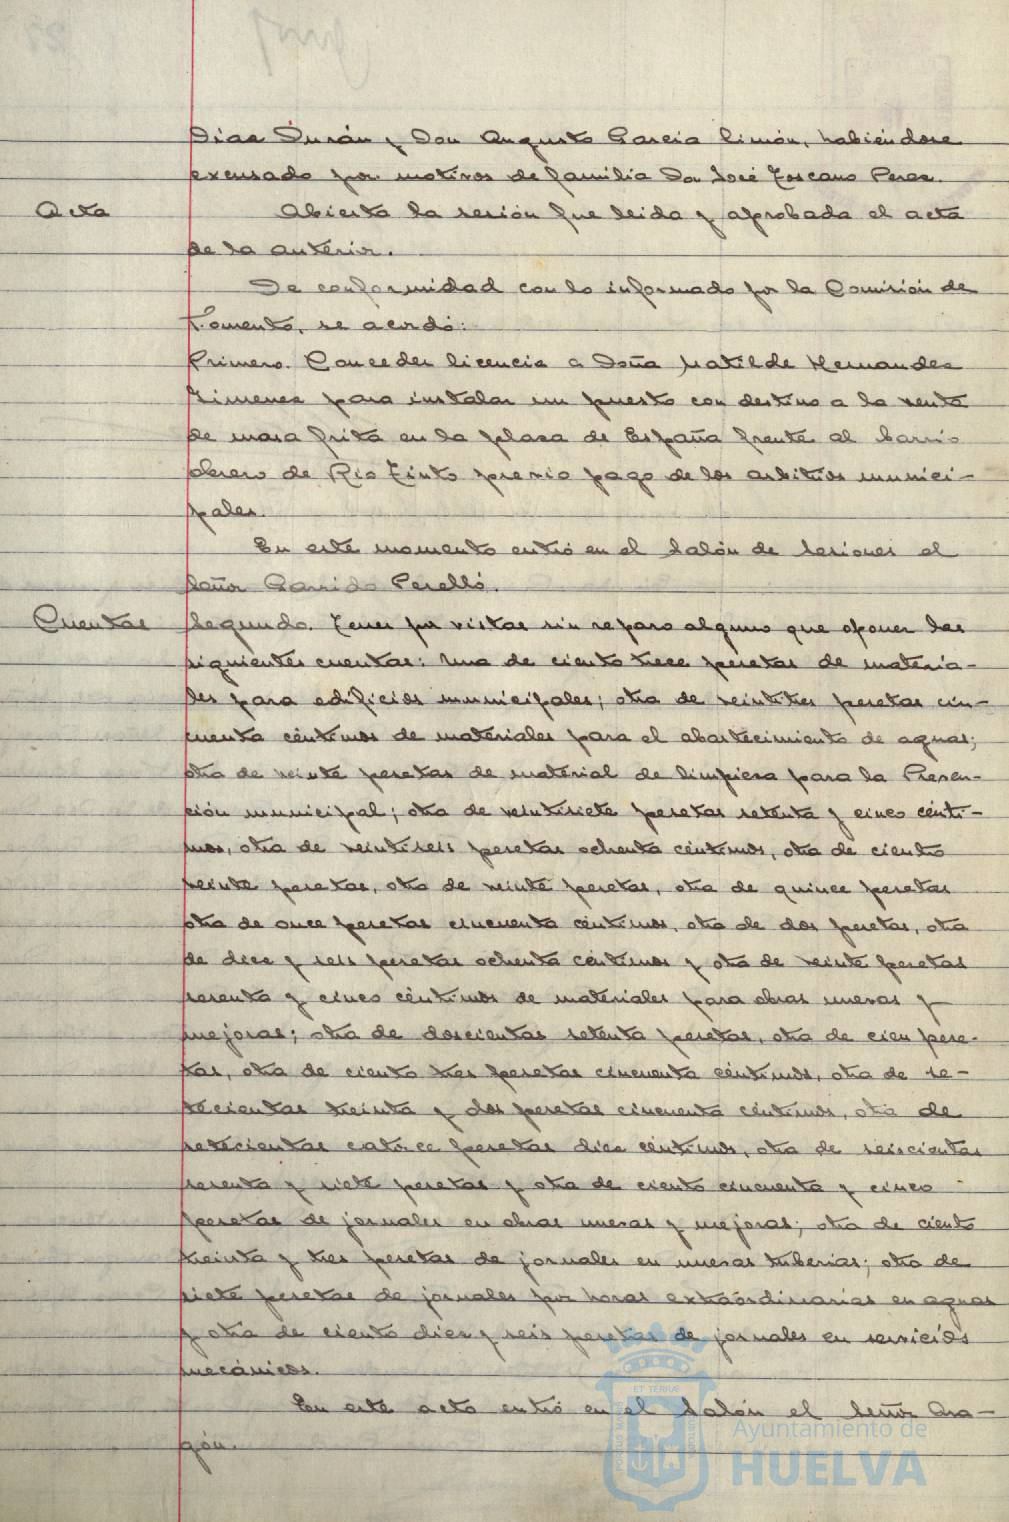 Diaz Durán y Don Augusto Garcia Limón, habiéndose
excusado por motivos de familia Don José Toscano Perez.
Acta
Abierta la sesión fue leida y aprobada el acta
de la anterior.
De conformidad con lo informado por la Comisión de
Fomento, se acordó:
Primero. Conceder licencia a Doña Matilde Hernandez
Jimenez para instalar un puesto con destino a la venta
de masa frita en la plaza de España frente al barrio
obrero de Rio Tinto previo pago de los arbitrios munici-
pales.
En este momento entró en el Salón de Sesiones el
Señor Garrido Perelló.
Cuentas
Segundo. Tener por vistas sin reparo alguno que oponer las
siguientes cuentas: una de ciento trece pesetas de materia-
les para edificios municipales; otra de veintitres pesetas cin-
cuenta céntimos de materiales para el abastecimiento de aguas;
otra de veinte pesetas de material de limpieza para la Preven-
ción municipal; otra de veintisiete pesetas setenta y cinco cénti-
mos, otra de veintiseis pesetas ochenta céntimos, otra de ciento
veinte pesetas, otra de veinte pesetas, otra de quince pesetas
otra de once pesetas cincuenta céntimos, otra de dos pesetas, otra
de diez y seis pesetas ochenta céntimos y otra de veinte pesetas
sesenta y cinco céntimos de materiales para obras nuevas y
mejoras; otra de doscientas setenta pesetas, otra de cien pese-
tas, otra de ciento tres pesetas cincuenta céntimos, otra de se-
tecientas treinta y dos pesetas cincuenta céntimos, otra de
setecientas catorce pesetas diez céntimos, otra de seiscientas
sesenta y siete pesetas y otra de ciento cincuenta y cinco
pesetas de jornales en obras nuevas y mejoras; otra de ciento
treinta y tres pesetas de jornales en nuevas tuberias; otra de
siete pesetas de jornales por horas extraordinarias en aguas
y otra de ciento diez y seis pesetas de jornales en servicios
mecánicos.
En este acto entró en el Salón el Señor Ara-
gón.
ET TERRÆ
Ayuntamiento de
HUELVA